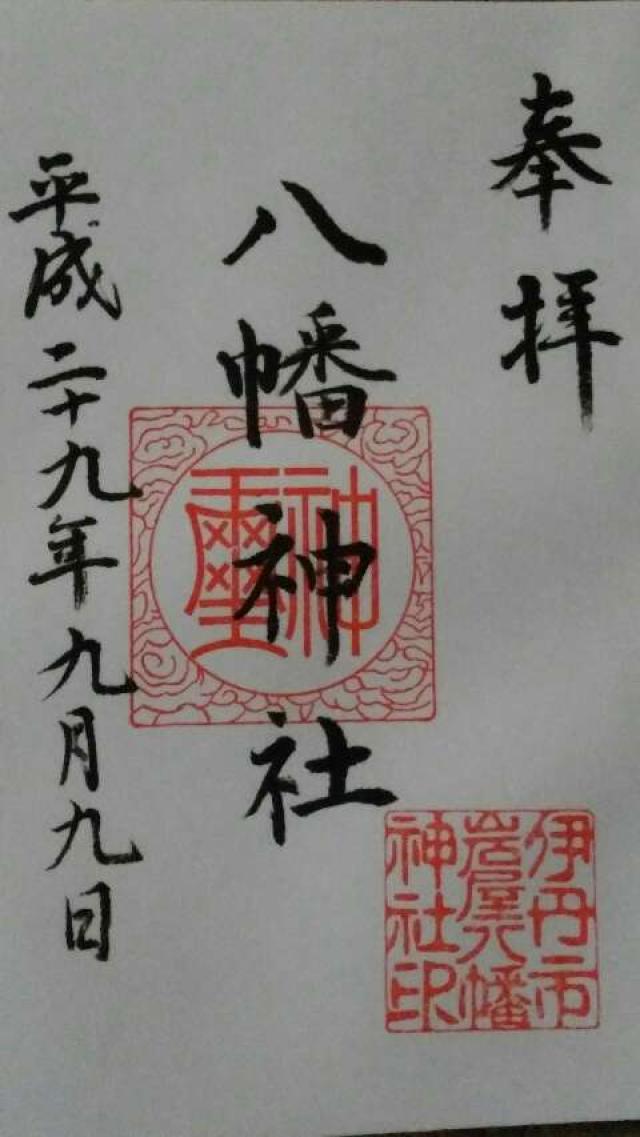 奉拝
八幡神社
神璽
平成二十九年九月九日
伊丹市
岩屋八幡
神社印